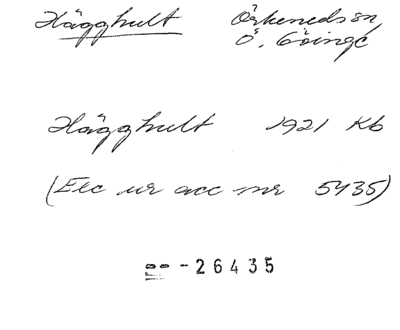 Hägghult Örkeneds sn,
Ö. Göinge
Hägghult 1921 Kb
(Exc ur acc nr 5435)
-26435